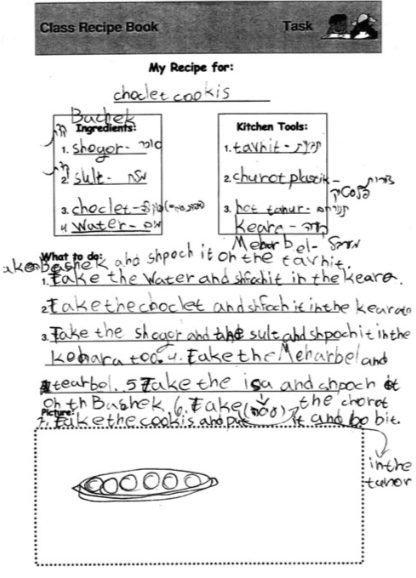 Class Recipe Book Task
My Recipe for:
choclet cookis
Bashek
Ingredients:
1. shogor- סוכר
2. sult - מלח
3. choclet-
4. water - מים
Kitchen Tools:
1. tavnit - תבנית
2. churot plastik -
3. hot tanur-
keara - קערה
Meharbel-
What to do:
Bashek and shpoch it oh the tavhit.
1. take the water and shfochit in the keara.
2. take the choclet and shfoch it in the keara too
3. Take the shogor and the sult and shpoch it in the
kehara too. 4. take the Meharbel and
tearbel. 5 take the isa and shpoch it
oh th Bashek 6. take the chorot
Picture:
7. take the cookis and put it and bo bit.
in the
tanor